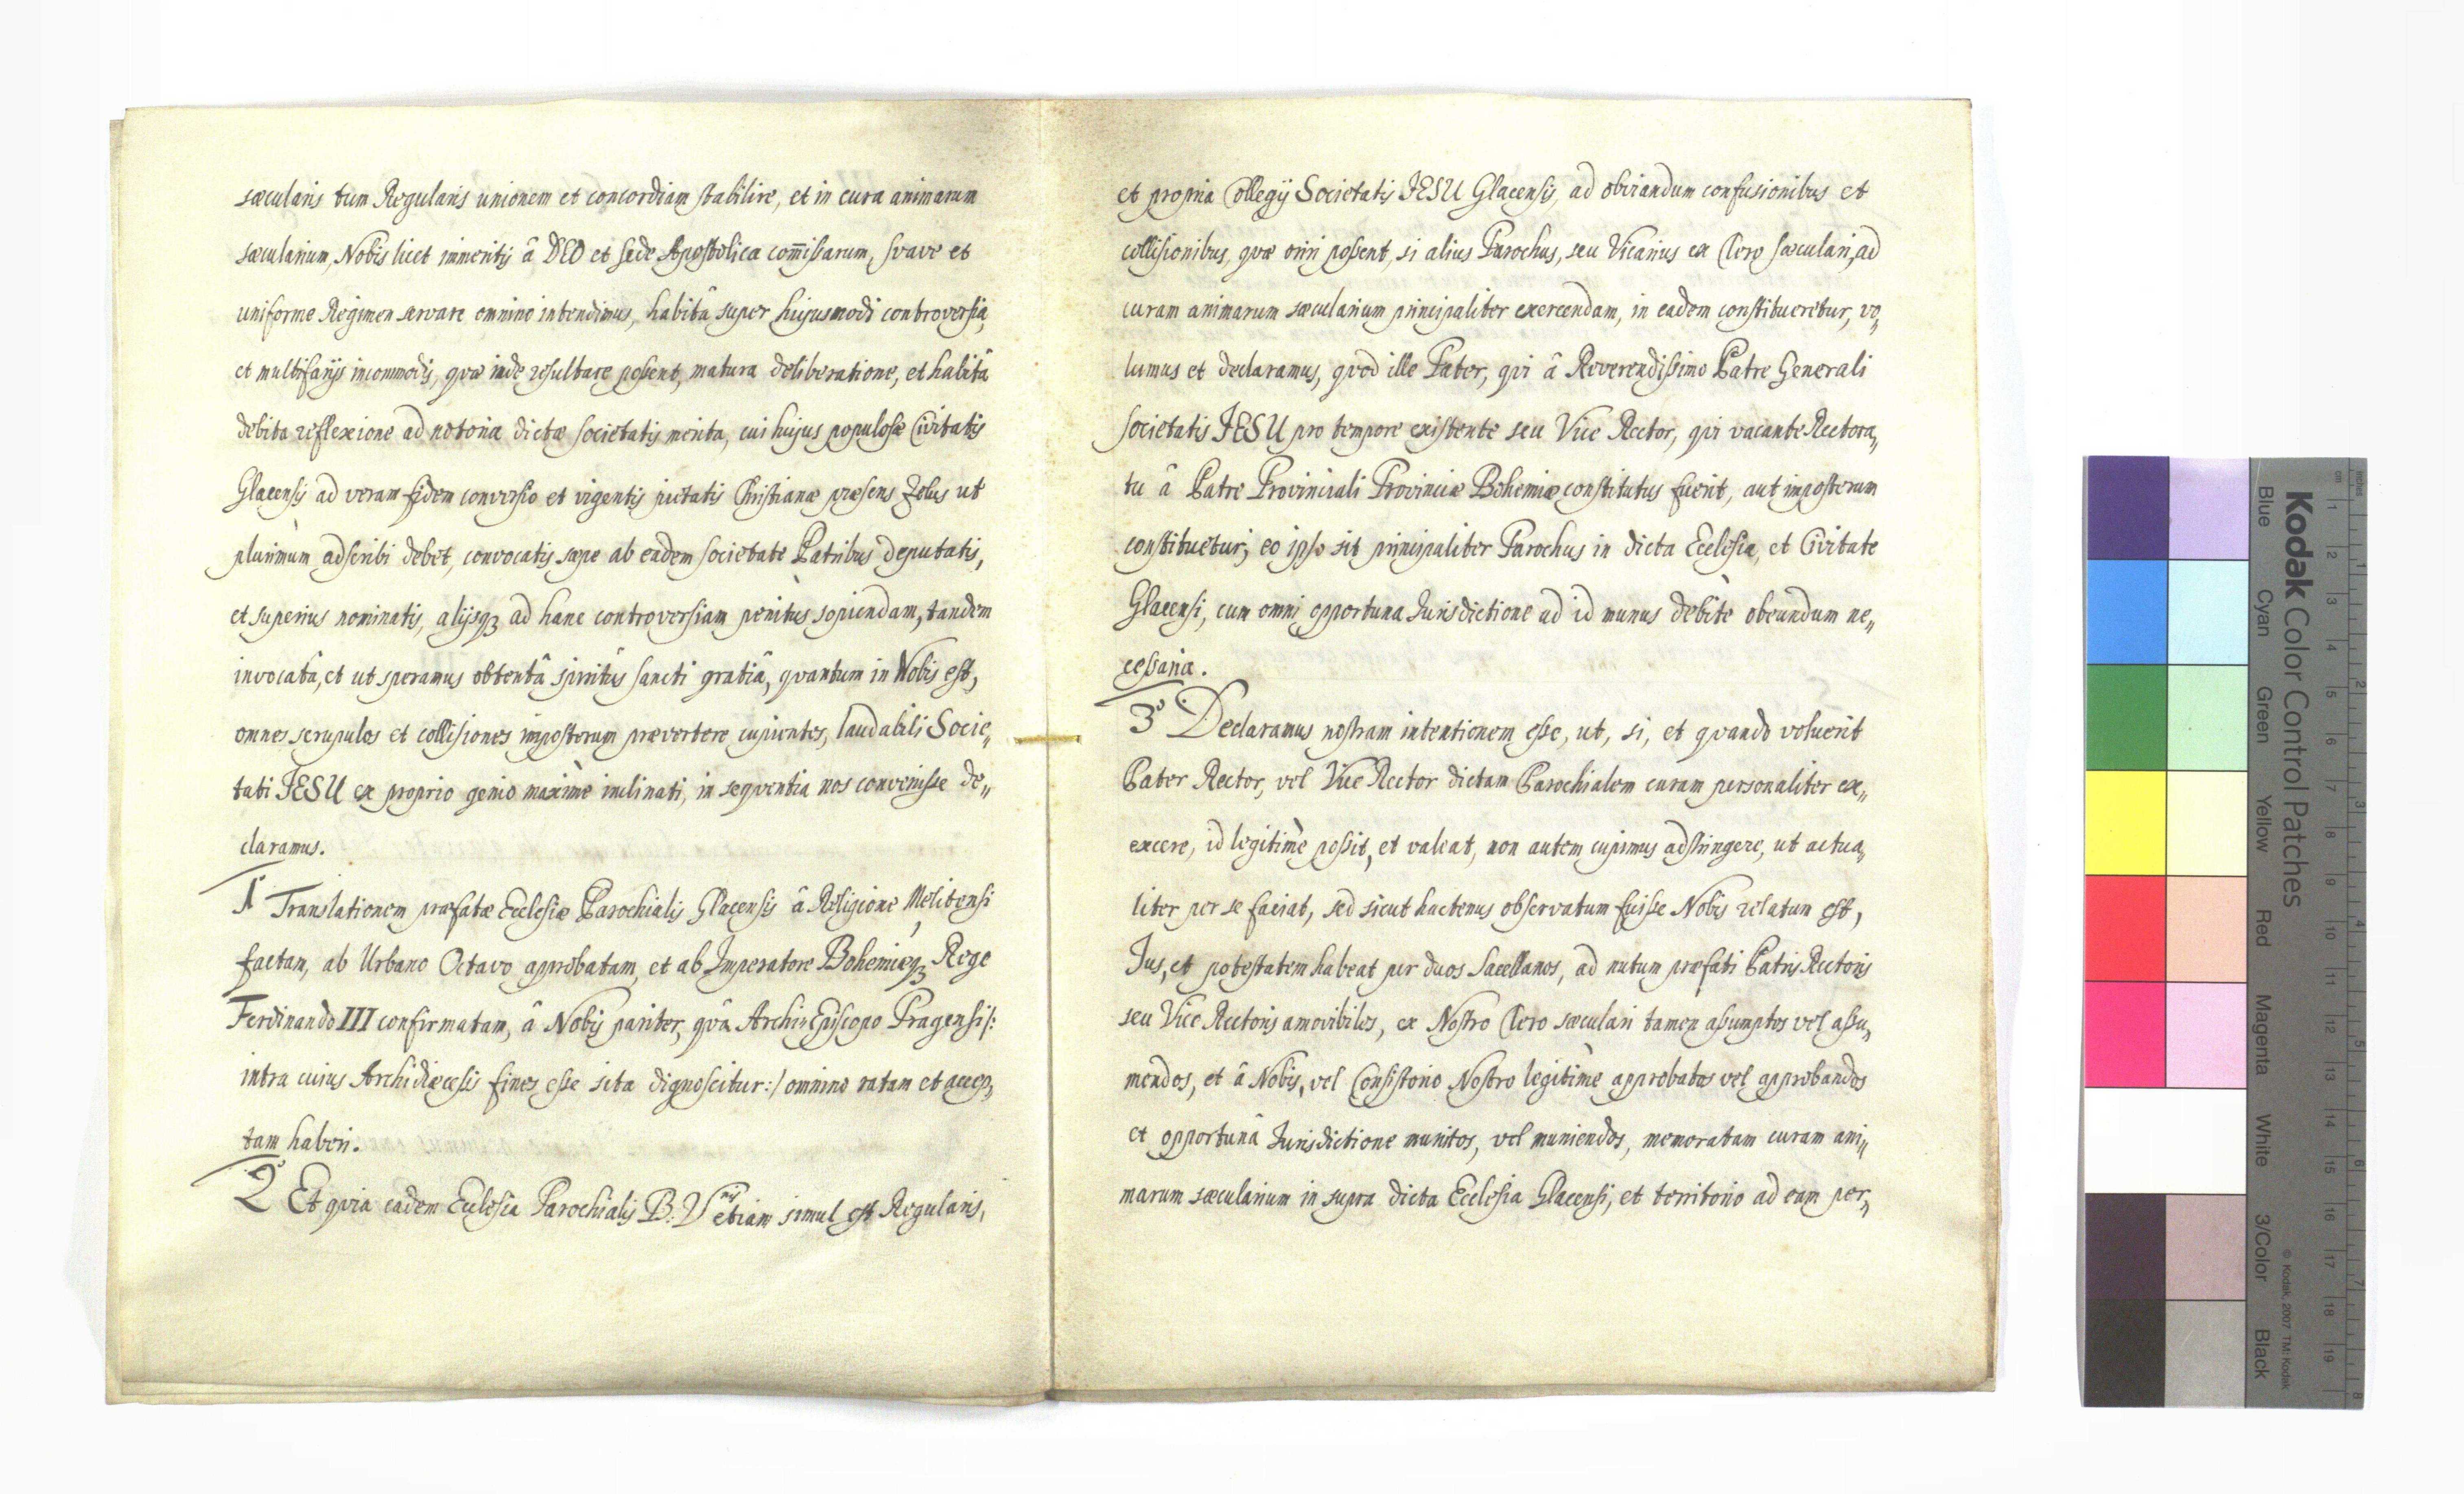 sæcularis tum Regularis unionem et concordiam stabilire, et in cura animarum
sæcularium, Nobis licet immeritis â DEO et Sede Apostolica com̄issarum, svave et
uniforme Regimen servare omnino intendimus, habitâ super hujusmodi controversia,
et multifarijs incommodis, qvæ inde resultare possent, matura deliberatione, et habitâ
debita reflexione ad notoria dictæ societatis merita, cui hujus populosæ Civitatis
Glacensis ad veram fidem conversio et vigentis pietatis Christianæ præsens Zelus ut
plurimùm adscribi debet, convocatis sæpe ab eadem societate Patribus deputatis,
et superius nominatis, alijsqꝫ ad hanc controversiam penitùs sopiendam, tandem
invocatâ, et ut speramus obtentâ spiritûs sancti gratiâ, qvantum in Nobis est,
omnes scrupulos et collisiones imposterum prævertere cupientes, laudabili Socie„
tati JESU ex proprio genio maximè inclinati, in seqventia nos convenisse de„
claramus.
1º Translationem præfatæ Ecclesiæ Parochialis Glacensis â Religione Melitensi
factam, ab Urbano Octavo approbatam, et ab Imperatore Bohemiæqꝫ Rege
Ferdinando III confirmatam, â Nobis pariter, qvâ Archi-Episcopo Pragensi /:
intra cuius Archidiæcesis fines esse sita dignoscitur :/ omnino ratam et accep„
tam haberi.
2º Et qvia eadem Ecclesia Parochialis B: V^nis etiam simul est Regularis,
et propria Collegij Societatis JESU Glacensis, ad obviandum confusionibus et
collisionibus, qvæ oriri possent, si alius Parochus, seu Vicarius ex Clero sæculari, ad
curam animarum sæcularium principaliter exercendam, in eadem constitueretur, vo„
lumus et declaramus, qvod ille Pater, qvi â Reverendissimo Patre Generali
societatis JESU pro tempore existente seu Vice Rector, qvi vacante Rectora„
tu â Patre Provinciali Provinciæ Bohemiæ constitutus fuerit, aut imposterum
constituetur, eo ipso sit principaliter Parochus in dicta Ecclesia, et Civitate
Glacensi, cum omni opportuna Jurisdictione ad id munus debitè obeundum ne„
cessaria.
3º Declaramus nostram intentionem esse, ut, si, et qvando voluerit
Pater Rector, vel Vice Rector dictam Parochialem curam personaliter ex„
excere, id legitimè possit, et valeat, non autem cupimus adstringere, ut actua„
liter per se faciat, sed sicut hactenus observatum fuisse Nobis relatum est,
Jus, et potestatem habeat per duos Sacellanos, ad nutum præfati Patris Rectoris
seu Vice Rectoris amovibiles, ex Nostro Clero sæculari tamen assumptos vel assu„
mendos, et â Nobis, vel Consistorio Nostro legitimè approbatos vel approbandos
et opportunâ Jurisdictione munitos, vel muniendos, memoratam curam ani„
marum sæcularium in supra dicta Ecclesia Glacensi, et territorio ad eam per„
Kodak Color Control Patches
Blue Cyan Green Yellow Red Magenta White 3/Color Black
© Kodak, 2007 TM: Kodak
inches 1 2 3 4 5 6 7 8
cm 1 2 3 4 5 6 7 8 9 10 11 12 13 14 15 16 17 18 19